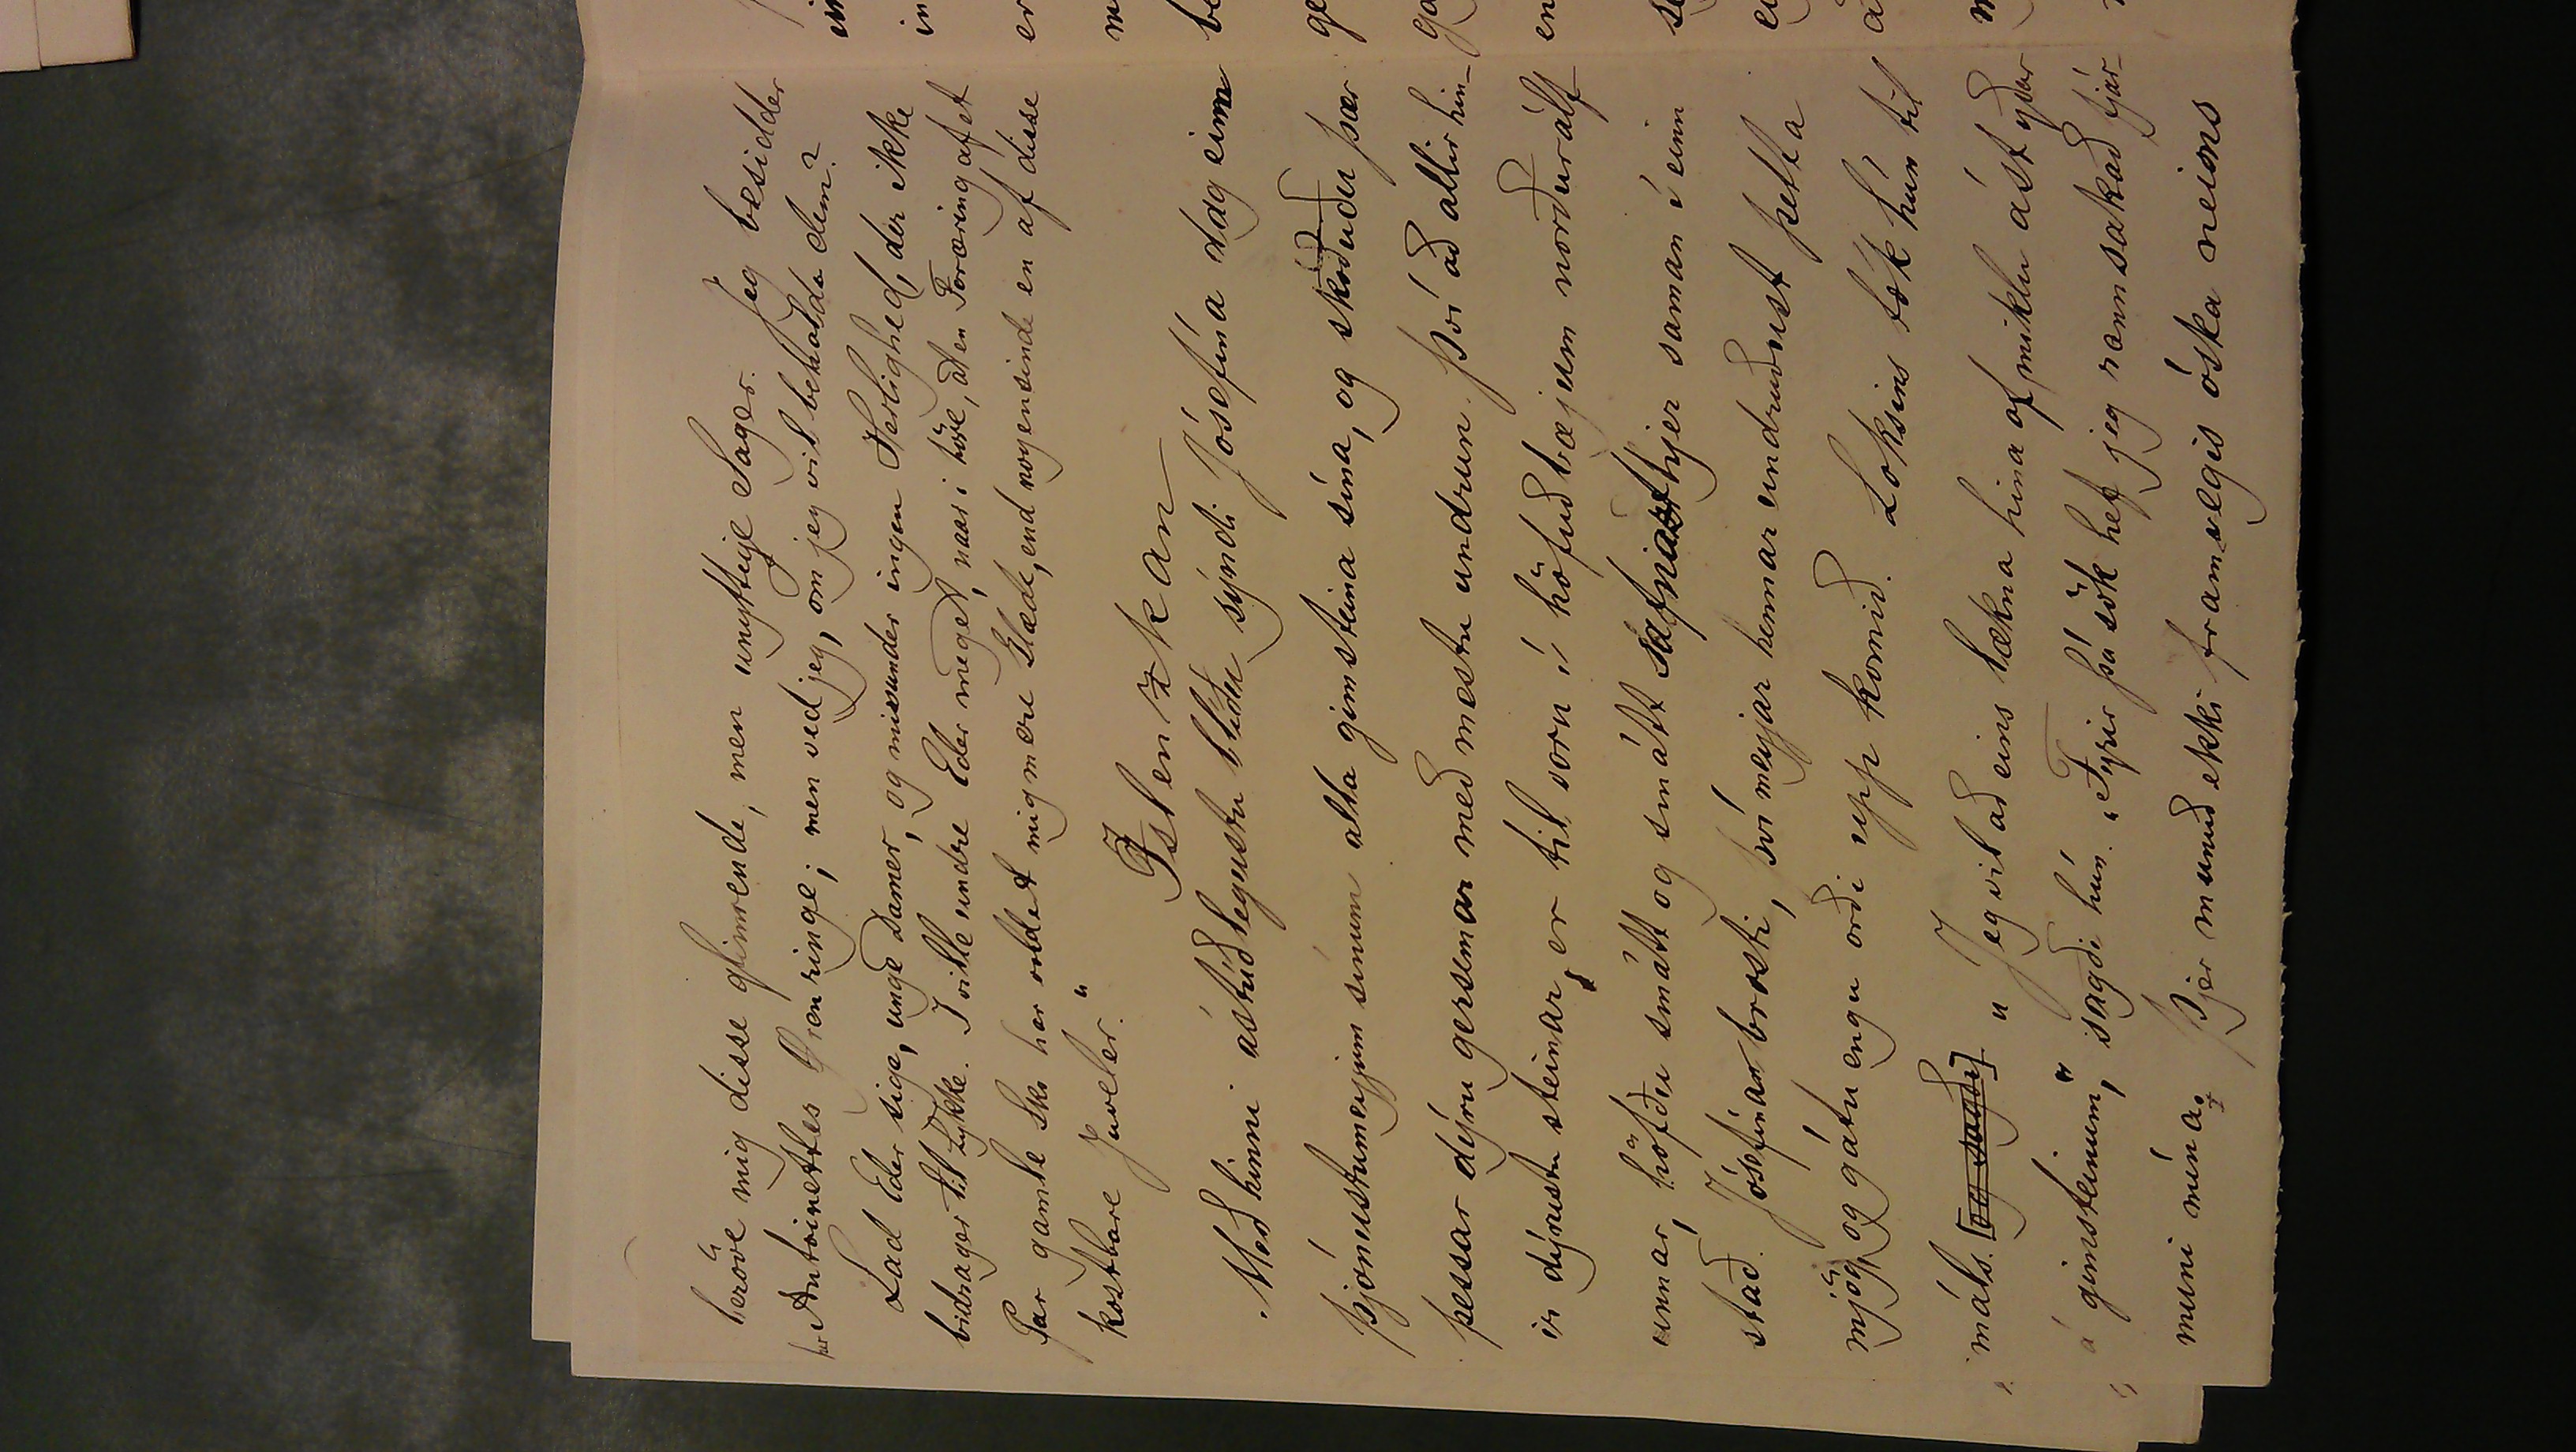 beröve mig disse glimrende, men unyttige Sager. Jeg besidder
her Antoinettes Ørenringe; men ved jeg, om jeg vil beholde dem?
Lad Eder sige, unge Damer, og misunder ingen Herlighed, der ikke
bidrager til Lykke. I ville undre Eder meget, naar i höre, at en Foræring af et
Par gamle Sko har voldet mig mere Glæde, end nogensinde en af disse
kostbare Juveler."
Íslenzkan
Með hinni ástúðlegustu blíðu sýndi Jósefína dag einn
þjónustumeyjum sínum alla gimsteina sína, og skoðuðu þær
þessar dýru gersemar með mestu undrun. Því að allir hin-
ir dýrustu steinar, er til voru í höfuðbæjum norðurálf
unnar, höfðu smátt og smátt safnast hjer saman í einn
stað. Jósefínar brosti, því meyjar hennar undruðust þetta
mjög, og gátu engu orði upp komið. Loksins tók hún til
máls. [og sagði] "Jeg vil að eins lækna hina of miklu ást yðar
á gimsteinum," sagði hún. "Fyrir þá sök hef jeg rannsakað fjár-
muni mína. Þjer munuð ekki framvegis óska neins